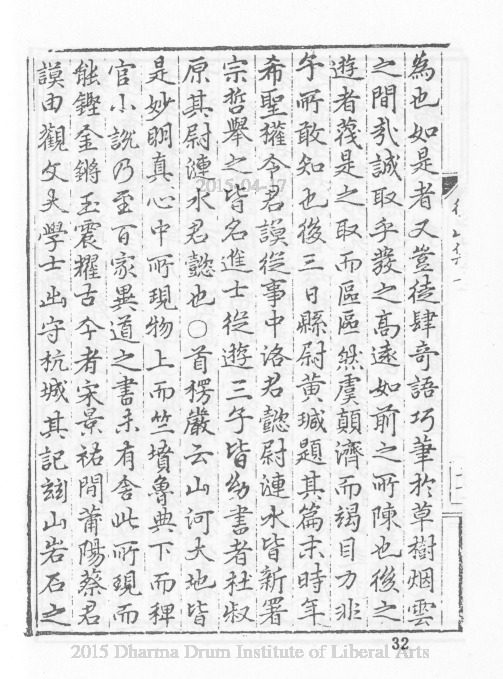 為也如是者又豈徒肆奇語巧筆於草樹烟雲
之間哉誠取乎發之高遠如前之所陳也後之
遊者蔑是之取而區區然虞顛濟而竭目力非
予所敢知也後三日縣尉黄瑊題其篇末時年
希聖權令君謨從事中洛君懿尉漣水皆新署
宗哲舉之皆名進士從遊三子皆幼書者杜叔
原其尉漣水君懿也〇首楞嚴云山河大地皆
是妙明真心中所現物上而竺墳魯典下而稗
官小說乃至百家異道之書未有舍此所現而
能鏗金鏘玉震耀古今者宋景祐間莆陽蔡君
謨由觀文大學士出守杭城其記兹山岩石之
32
2015-04-17
2015 Dharma Drum Institute of Liberal Arts